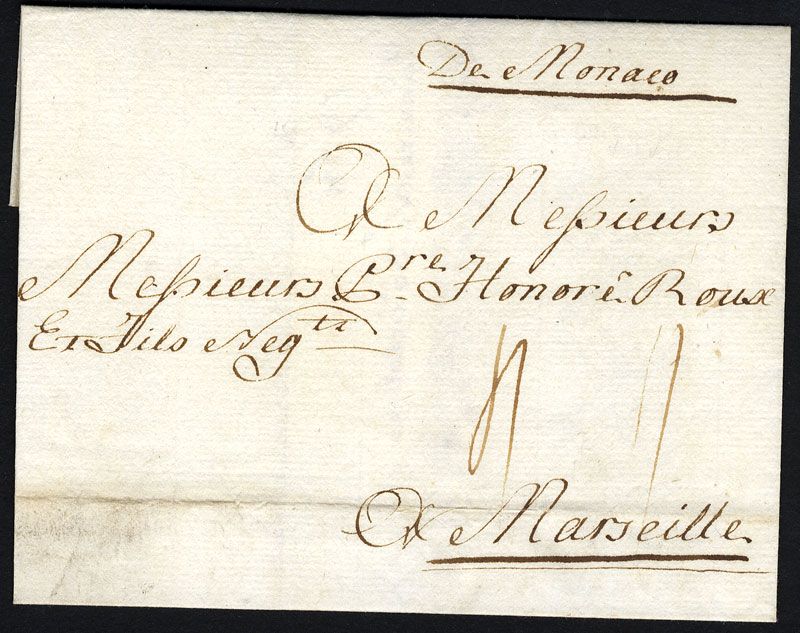 De Monaco
A Messieurs
Messieurs P.re Honoré Roux
Et Fils Neg.ts
A Marseille